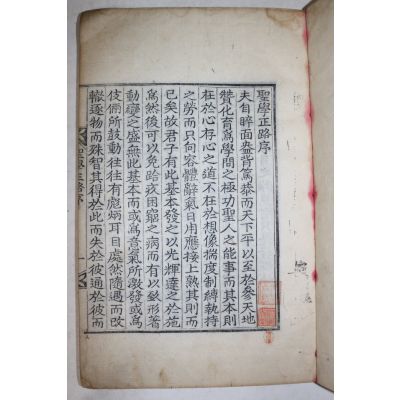 聖學正路序
夫自睟面盎背篤恭而天下平以至於參天地
贊化育爲學問之極功聖人之能事而其本則
在於心存心之道不在於想像揣度制縛執持
之勞而只向容體辭氣日用應接上熟其則而
已矣故君子有此基本發之以光輝達之於施
爲然後可以免跲疚困窮之病而有以致形著
動變之盛無此基本而或爲意氣所激發或爲
伎倆所鼓動往往有彪炳耳目處然隨遇而改
轍逐物而殊智其得於此而失於彼通於彼而
聖學正路序